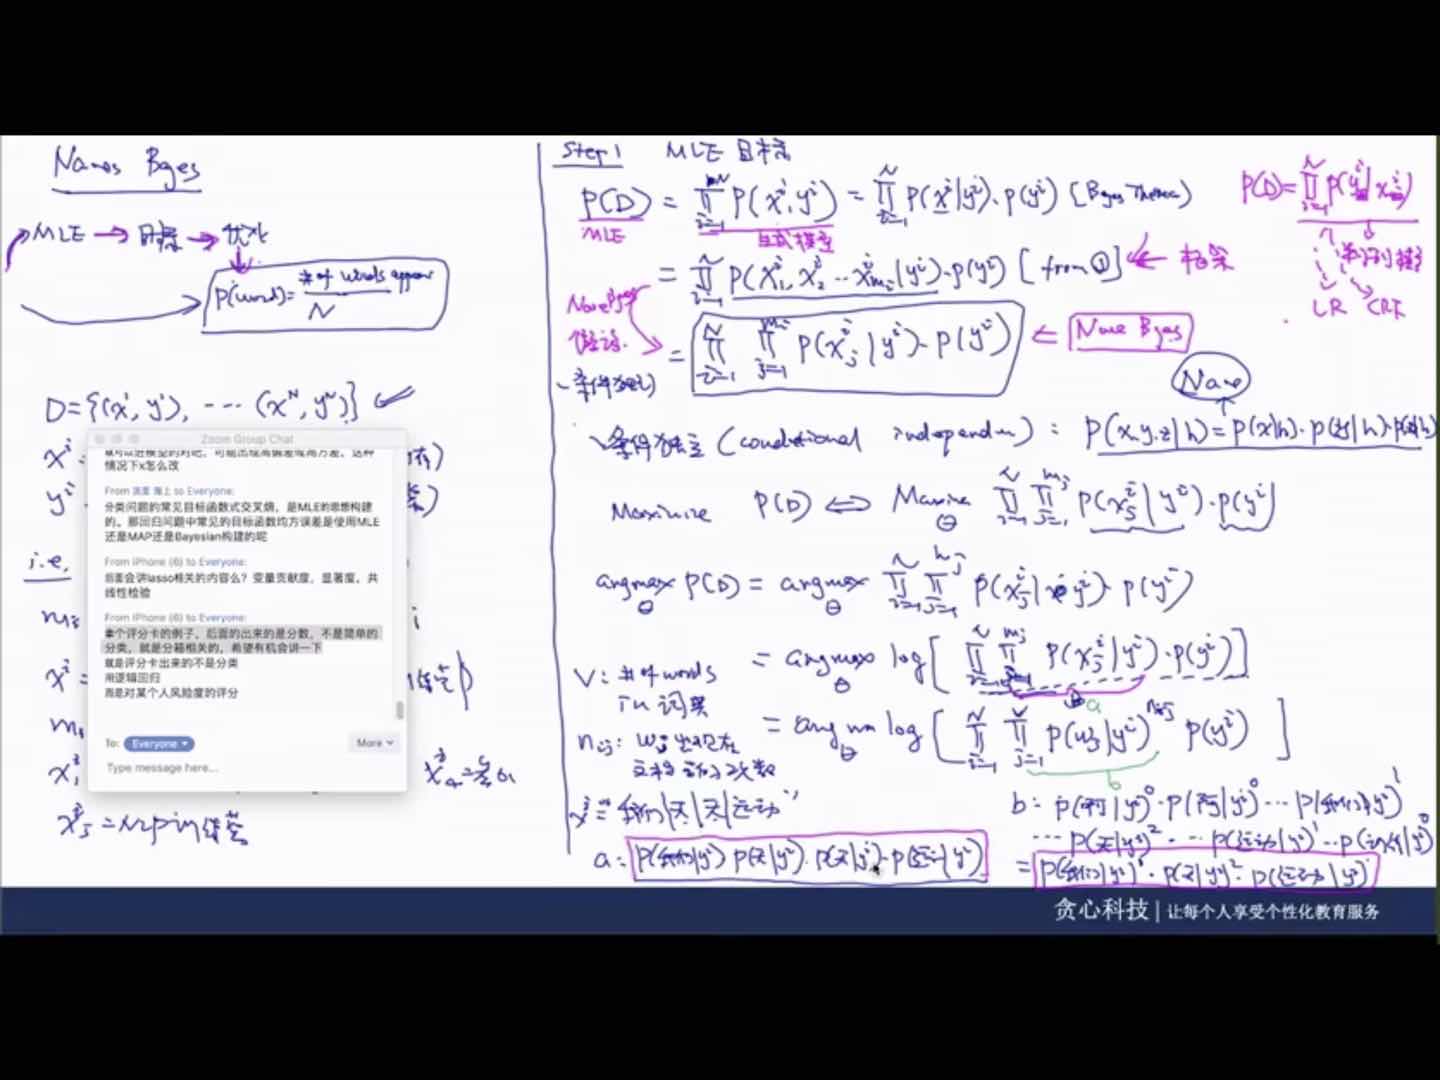 Naive Bayes
MLE → 目标 → 优化
P(word) = # of words appear / N
D={(x¹, y¹), --- (x^N, y^N)}
x^i
y^i
i.e.
Zoom Group Chat
就可以进模型的对吧，可能出现高偏差或高方差，这种
情况下x怎么改
From 浪里 海上 to Everyone:
分类问题的常见目标函数式交叉熵，是MLE的思想构建
的。那回归问题中常见的目标函数均方误差是使用MLE
还是MAP还是Bayesian构建的呢
From iPhone (6) to Everyone:
后面会讲lasso相关的内容么？变量贡献度，显著度，共
线性检验
From iPhone (6) to Everyone:
拿个评分卡的例子，后面的出来的是分数，不是简单的
分类，就是分箱相关的，希望有机会讲一下
就是评分卡出来的不是分类
用逻辑回归
而是对某个人风险度的评分
To: Everyone
More
Type message here...
Step 1 MLE 目标
P(D) = ∏_{i=1}^{N} P(x^i, y^i) = ∏_{i=1}^{N} P(x^i|y^i)·P(y^i) [Bayes Theorem]
MLE
生成模型
P(D)=∏_{i=1}^{N} P(y^i|x^i)
判别模型
LR CRF
= ∏_{i=1}^{N} P(x_1^i, x_2^i ... x_{m_i}^i|y^i)·P(y^i) [from ①] ← 框架
Naive Bayes
假设
条件独立
= ∏_{i=1}^{N} ∏_{j=1}^{m_i} P(x_j^i|y^i)·P(y^i) ← Naive Bayes
Naive
条件独立 (conditional independen) : P(x,y,z|h)=P(x|h)·P(y|h)·P(z|h)
Maximize P(D) ⟺ Maximize_θ ∏_{i=1}^{N} ∏_{j=1}^{m_i} P(x_j^i|y^i)·P(y^i)
argmax_θ P(D) = argmax_θ ∏_{i=1}^{N} ∏_{j=1}^{m_j} P(x_j^i|y^i)·P(y^i)
= argmax_θ log[∏_{i=1}^{N} ∏_{j=1}^{m_i} P(x_j^i|y^i)·P(y^i)]
a
V: # of words
in 词典
= argmax_θ log[∏_{i=1}^{N} ∏_{j=1}^{V} P(w_j|y^i)^{n_ij} P(y^i)]
b
n_ij: w_j 出现在
文档 i 的次数
x^i = 我们|天|天|运动
a: P(我们|y^i) P(天|y^i)·P(天|y^i)·P(运动|y^i)
b: P(啊|y^i)^0·P(阿|y^i)^0 ... P(我们|y^i)^1
... P(天|y^i)^2 ... P(运动|y^i)^1 ...
= P(我们|y^i)^1·P(天|y^i)^2·P(运动|y^i)^1
贪心科技 | 让每个人享受个性化教育服务